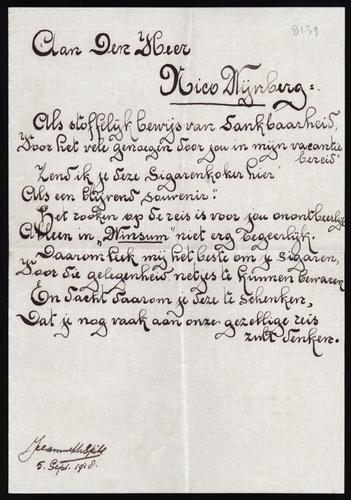 8139
Aan Den Heer
Nico Wijnberg:.
Als stoffelijk bewijs van dankbaarheid,
Voor het vele genoegen door jou in mijn vacantie
bereid"
Zend ik je deze sigarenkoker hier
Als een blijvend souvenir".
Het rooken op de reis is voor jou onontbeerlijk
Alleen in "Winsum" niet erg begeerlijk.
Daarom leek mij het beste om je sigaren,
Voor die gelegenheid netjes te kunnen bewaren
En dacht daarom je deze te schenken,
Dat je nog vaak aan onze gezellige reis
zult denken.
5. Sept. 1918.